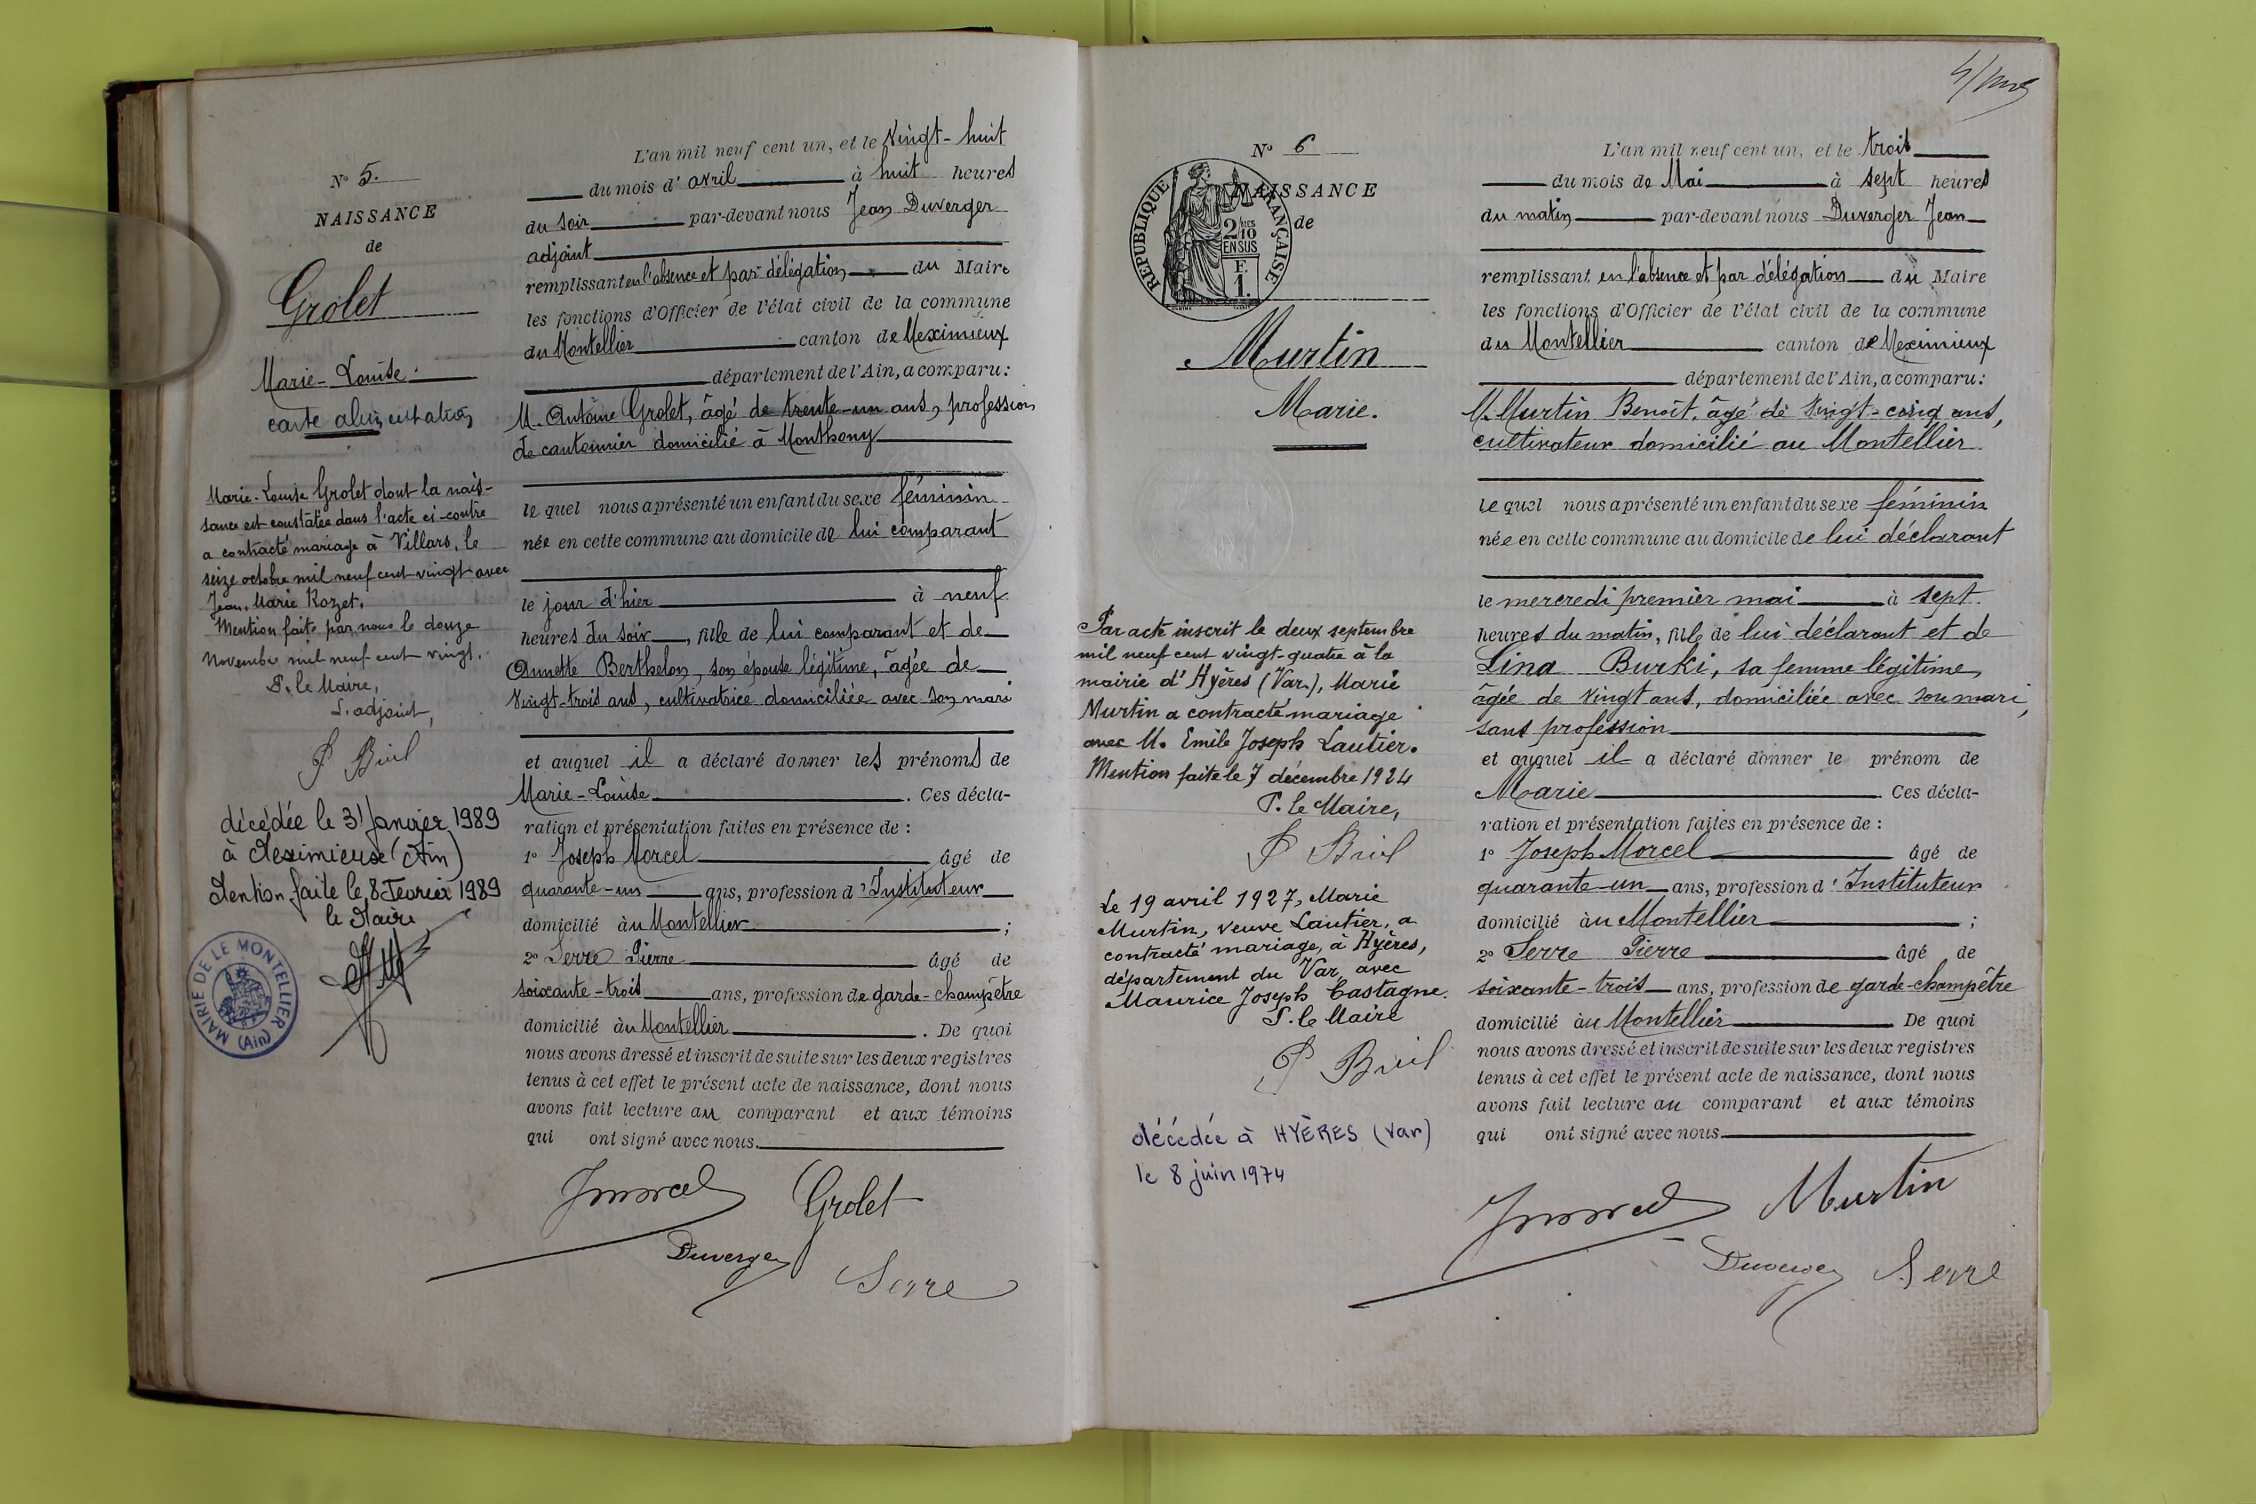 N° 5.
NAISSANCE
de
Grolet
Marie-Louise.
carte alimentation
Marie-Louise Grolet dont la nais-
sance est constatée dans l'acte ci-contre
a contracté mariage à Villars, le
seize octobre mil neuf cent vingt avec
Jean-Marie Rozet.
Mention faite par nous le douze
Novembre mil neuf cent vingt.
P. le Maire,
L'adjoint,
décédée le 31 Janvier 1989
à Meximieux (Ain)
Mention faite le 8 Fevrier 1989
le Maire
MAIRIE DE LE MONTELLIER
(Ain)
L'an mil neuf cent un, et le vingt-huit
du mois d'avril à huit heures
du soir par-devant nous Jean Duverger
adjoint
remplissant en l'absence et par délégation du Maire
les fonctions d'Officier de l'état civil de la commune
du Montellier canton de Meximieux
département de l'Ain, a comparu :
M. Antoine Grolet, âgé de trente-un ans, profession
de cantonnier domicilié à Monthony
le quel nous a présenté un enfant du sexe féminin
née en cette commune au domicile de lui comparant
le jour d'hier à neuf
heures du soir, fille de lui comparant et de
Annette Berthelon, son épouse légitime, âgée de
vingt-trois ans, cultivatrice domiciliée avec son mari
et auquel il a déclaré donner les prénoms de
Marie-Louise. Ces décla-
ration et présentation faites en présence de :
1° Joseph Morcel âgé de
quarante-un ans, profession d'Instituteur
domicilié au Montellier ;
2° Serre Pierre âgé de
soixante-trois ans, profession de garde-champêtre
domicilié au Montellier. De quoi
nous avons dressé et inscrit de suite sur les deux registres
tenus à cet effet le présent acte de naissance, dont nous
avons fait lecture au comparant et aux témoins
qui ont signé avec nous.
JMorcel Grolet
Duverger Serre
N° 6
REPUBLIQUE FRANÇAISE
2/10 MES
EN SUS
F.
1.
NAISSANCE
de
Murtin
Marie.
Par acte inscrit le deux septembre
mil neuf cent vingt-quatre à la
mairie d'Hyères (Var), Marie
Murtin a contracté mariage
avec M. Emile Joseph Lautier.
Mention faite le 7 décembre 1924
P. le Maire,
Le 19 avril 1927, Marie
Murtin, veuve Lautier, a
contracté mariage, à Hyères,
département du Var, avec
Maurice Joseph Castagne.
P. le Maire
décédée à HYÈRES (Var)
le 8 juin 1974
L'an mil neuf cent un, et le trois
du mois de Mai à sept heures
du matin par-devant nous Duverger Jean
remplissant en l'absence et par délégation du Maire
les fonctions d'Officier de l'état civil de la commune
du Montellier canton de Meximieux
département de l'Ain, a comparu :
M. Murtin Benoît, âgé de vingt-cinq ans,
cultivateur domicilié au Montellier
le quel nous a présenté un enfant du sexe féminin
née en cette commune au domicile de lui déclarant
le mercredi premier mai à sept
heures du matin, fille de lui déclarant et de
Lina Burki, sa femme légitime,
âgée de vingt ans, domiciliée avec son mari,
sans profession
et auquel il a déclaré donner le prénom de
Marie Ces décla-
ration et présentation faites en présence de :
1° Joseph Morcel âgé de
quarante-un ans, profession d'Instituteur
domicilié au Montellier ;
2° Serre Pierre âgé de
soixante-trois ans, profession de garde-champêtre
domicilié au Montellier De quoi
nous avons dressé et inscrit de suite sur les deux registres
tenus à cet effet le présent acte de naissance, dont nous
avons fait lecture au comparant et aux témoins
qui ont signé avec nous
JMorcel Murtin
Duverger Serre